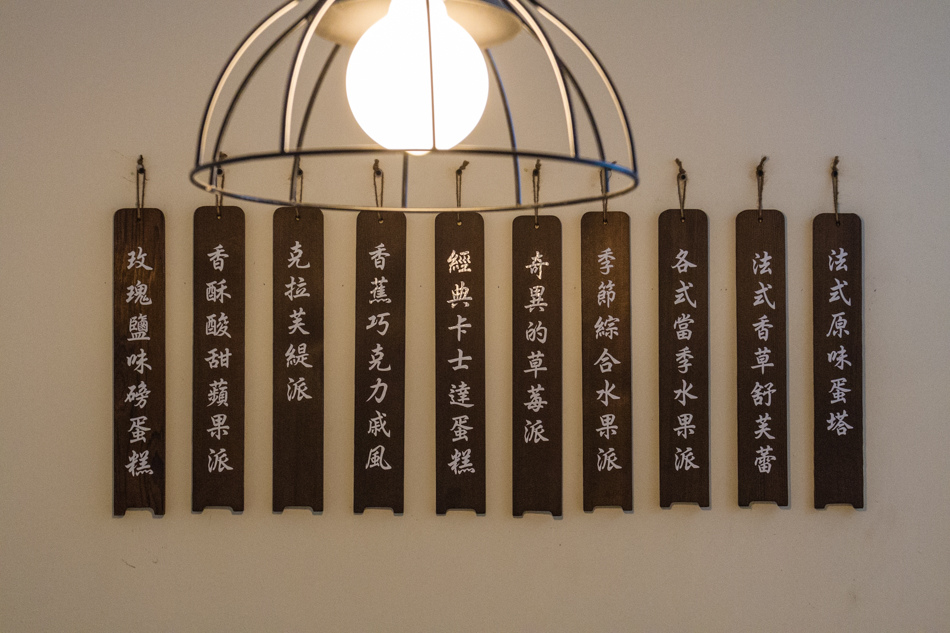 法式原味蛋塔
法式香草舒芙蕾
各式當季水果派
季節綜合水果派
奇異的草莓派
經典卡士達蛋糕
香蕉巧克力戚風
克拉芙緹派
香酥酸甜蘋果派
玫瑰鹽味磅蛋糕